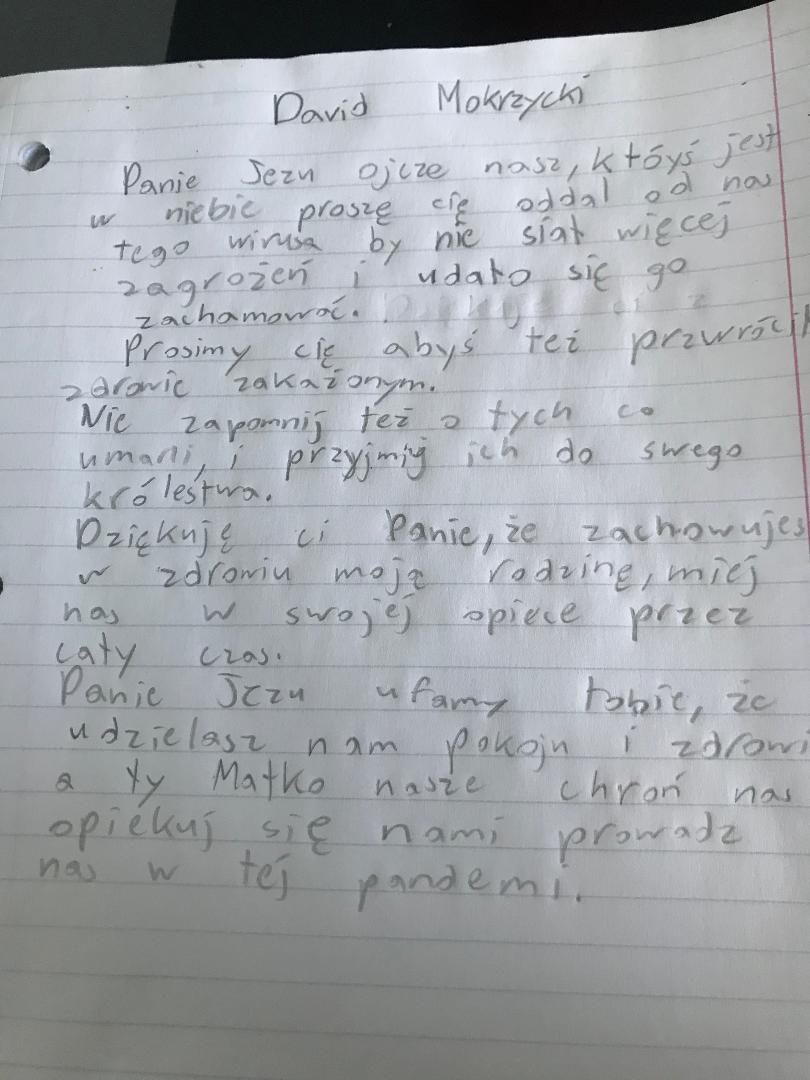 David Mokrzycki
Panie Jezu ojcze nasz, któyś jest
w niebie proszę cię oddal od nas
tego wirusa by nie siał więcej
zagrożeń i udało się go
zachamować.
Prosimy cię abyś też przwrócił
zdrowie zakażonym.
Nie zapomnij też o tych co
umarli, i przyjmij ich do swego
królestwa.
Dziękuję ci Panie, że zachowujes
w zdrowiu moją rodzinę, miej
nas w swojej opiece przez
cały czas.
Panie Jezu ufamy tobie, że
udzielasz nam pokoju i zdrowi
a ty Matko nasze chroń nas
opiekuj się nami prowadz
nas w tej pandemi.